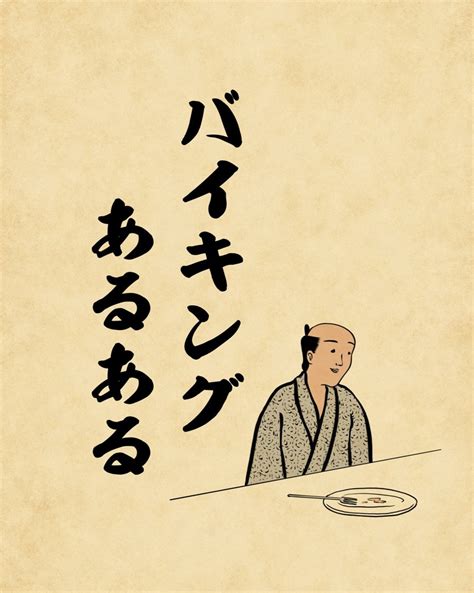 バイキング
あるある